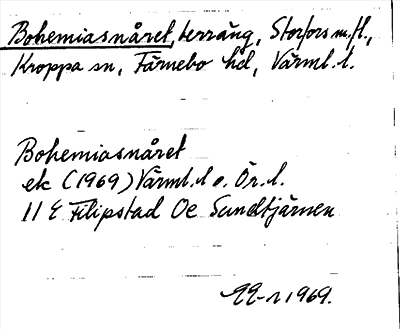 Bohemiasnåret, terräng, Storfors m.fl.,
Kroppa sn, Färnebo hd, Värml. l.
Bohemiasnåret
ek (1969) Värml. l o. Ör. l.
11 E Filipstad Oe Sundtjärnen
1969.